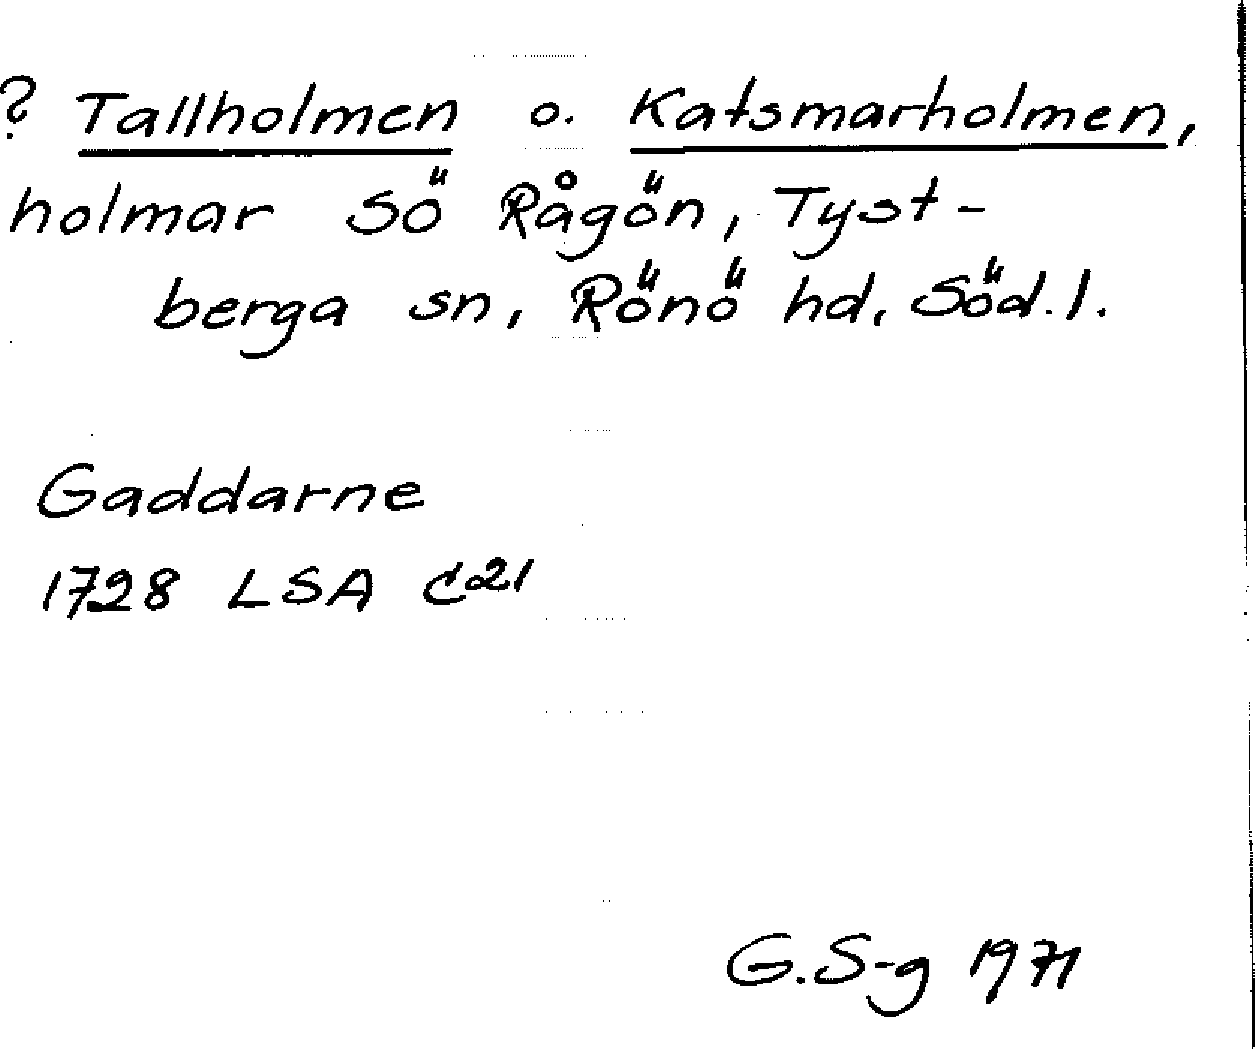 ? Tallholmen o. Katsmarholmen,
holmar SÖ Rågön, Tyst-
berga sn, Rönö hd, Söd.l.
Gaddarne
1728 LSA C21
G.S-g 1971